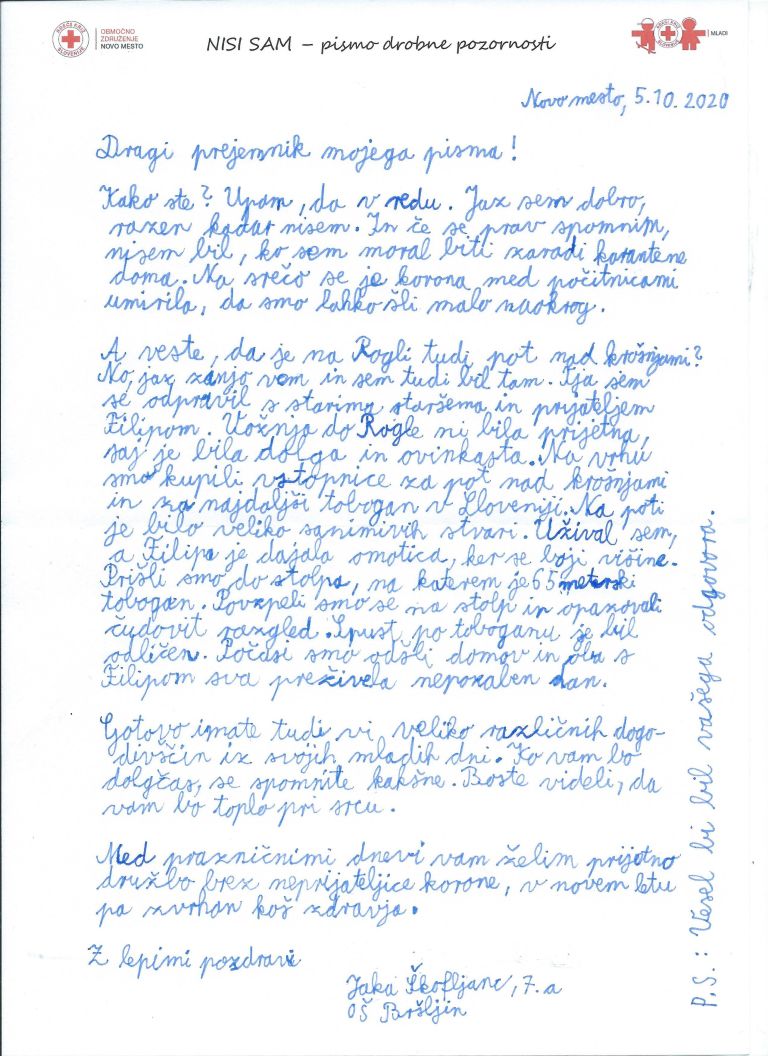 RDEČI KRIŽ SLOVENIJE
OBMOČNO
ZDRUŽENJE
NOVO MESTO
NISI SAM – pismo drobne pozornosti
MLADI
Novo mesto, 5.10.2020
Dragi prejemnik mojega pisma!
Kako ste? Upam, da v redu. Jaz sem dobro,
razen kadar nisem. In če se prav spomnim,
nisem bil, ko sem moral biti zaradi karantene
doma. Na srečo se je korona med počitnicami
umirila, da smo lahko šli malo naokrog.
A veste, da je na Rogli tudi pot nad krošnjami?
No, jaz zanjo vem in sem tudi bil tam. Tja sem
se odpravil s starima staršema in prijateljem
Filipom. Vožnja do Rogle ni bila prijetna,
saj je bila dolga in ovinkasta. Na vrhu
smo kupili vstopnice za pot nad krošnjami
in za najdaljši tobogan v Sloveniji. Na poti
je bilo veliko zanimivih stvari. Užival sem,
a Filipa je dajala omotica, ker se boji višine.
Prišli smo do stolpa, na katerem je 65 meterski
tobogan. Povzpeli smo se na stolp in opazovali
čudovit razgled. Spust po toboganu je bil
odličen. Počasi smo odšli domov in oba s
Filipom sva preživela nepozaben dan.
Gotovo imate tudi vi veliko različnih dogo-
divščin iz svojih mladih dni. Ko vam bo
dolgčas, se spomnite kakšne. Boste videli, da
vam bo toplo pri srcu.
Med prazničnimi dnevi vam želim prijetno
družbo brez neprijateljice korone, v novem letu
pa zvrhan koš zdravja.
Z lepimi pozdravi
Jaka Škofljanc, 7.a
OŠ Bršljin
P.S.: Vesel bi bil vašega odgovora.